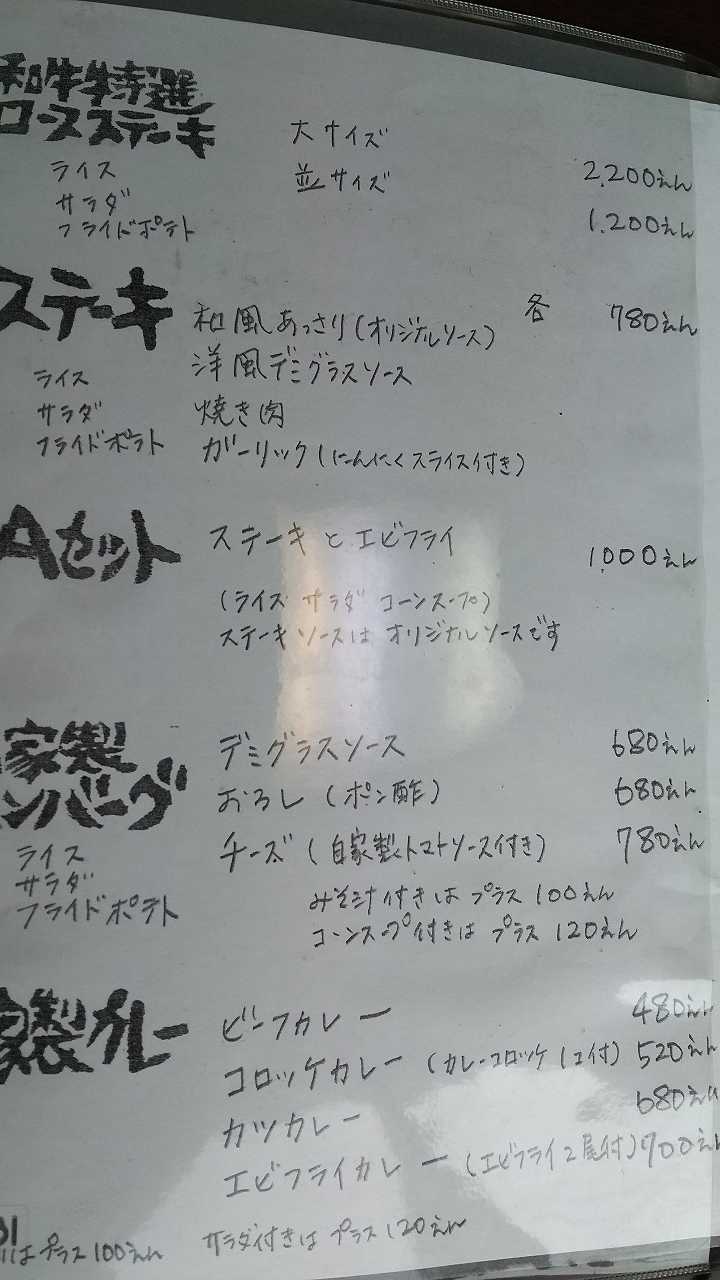 和牛特選
ロースステーキ
大サイズ 2,200えん
並サイズ 1,200えん
ライス
サラダ
フライドポテト
ステーキ
和風あっさり(オリジナルソース) 各 780えん
洋風デミグラスソース
焼き肉
ガーリック(にんにくスライス付き)
ライス
サラダ
フライドポテト
Aセット
ステーキとエビフライ 1,000えん
(ライス サラダ コーンスープ)
ステーキソースはオリジナルソースです
家製
ンバーグ
デミグラスソース 680えん
おろし(ポン酢) 680えん
チーズ(自家製トマトソース付き) 780えん
ライス
サラダ
フライドポテト
みそ汁付きはプラス100えん
コーンスープ付きはプラス120えん
家製カレー
ビーフカレー 480えん
コロッケカレー(カレーコロッケ1コ付) 520えん
カツカレー 680えん
エビフライカレー(エビフライ2尾付) 700えん
はプラス100えん サラダ付きはプラス120えん